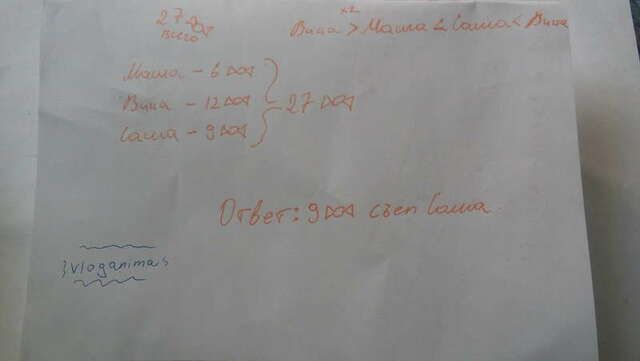 27
всего
x2
Вика > Маша < Саша < Вика
Маша - 6
Вика - 12
Саша - 9
27
Ответ: 9 съел Саша
vloganimas